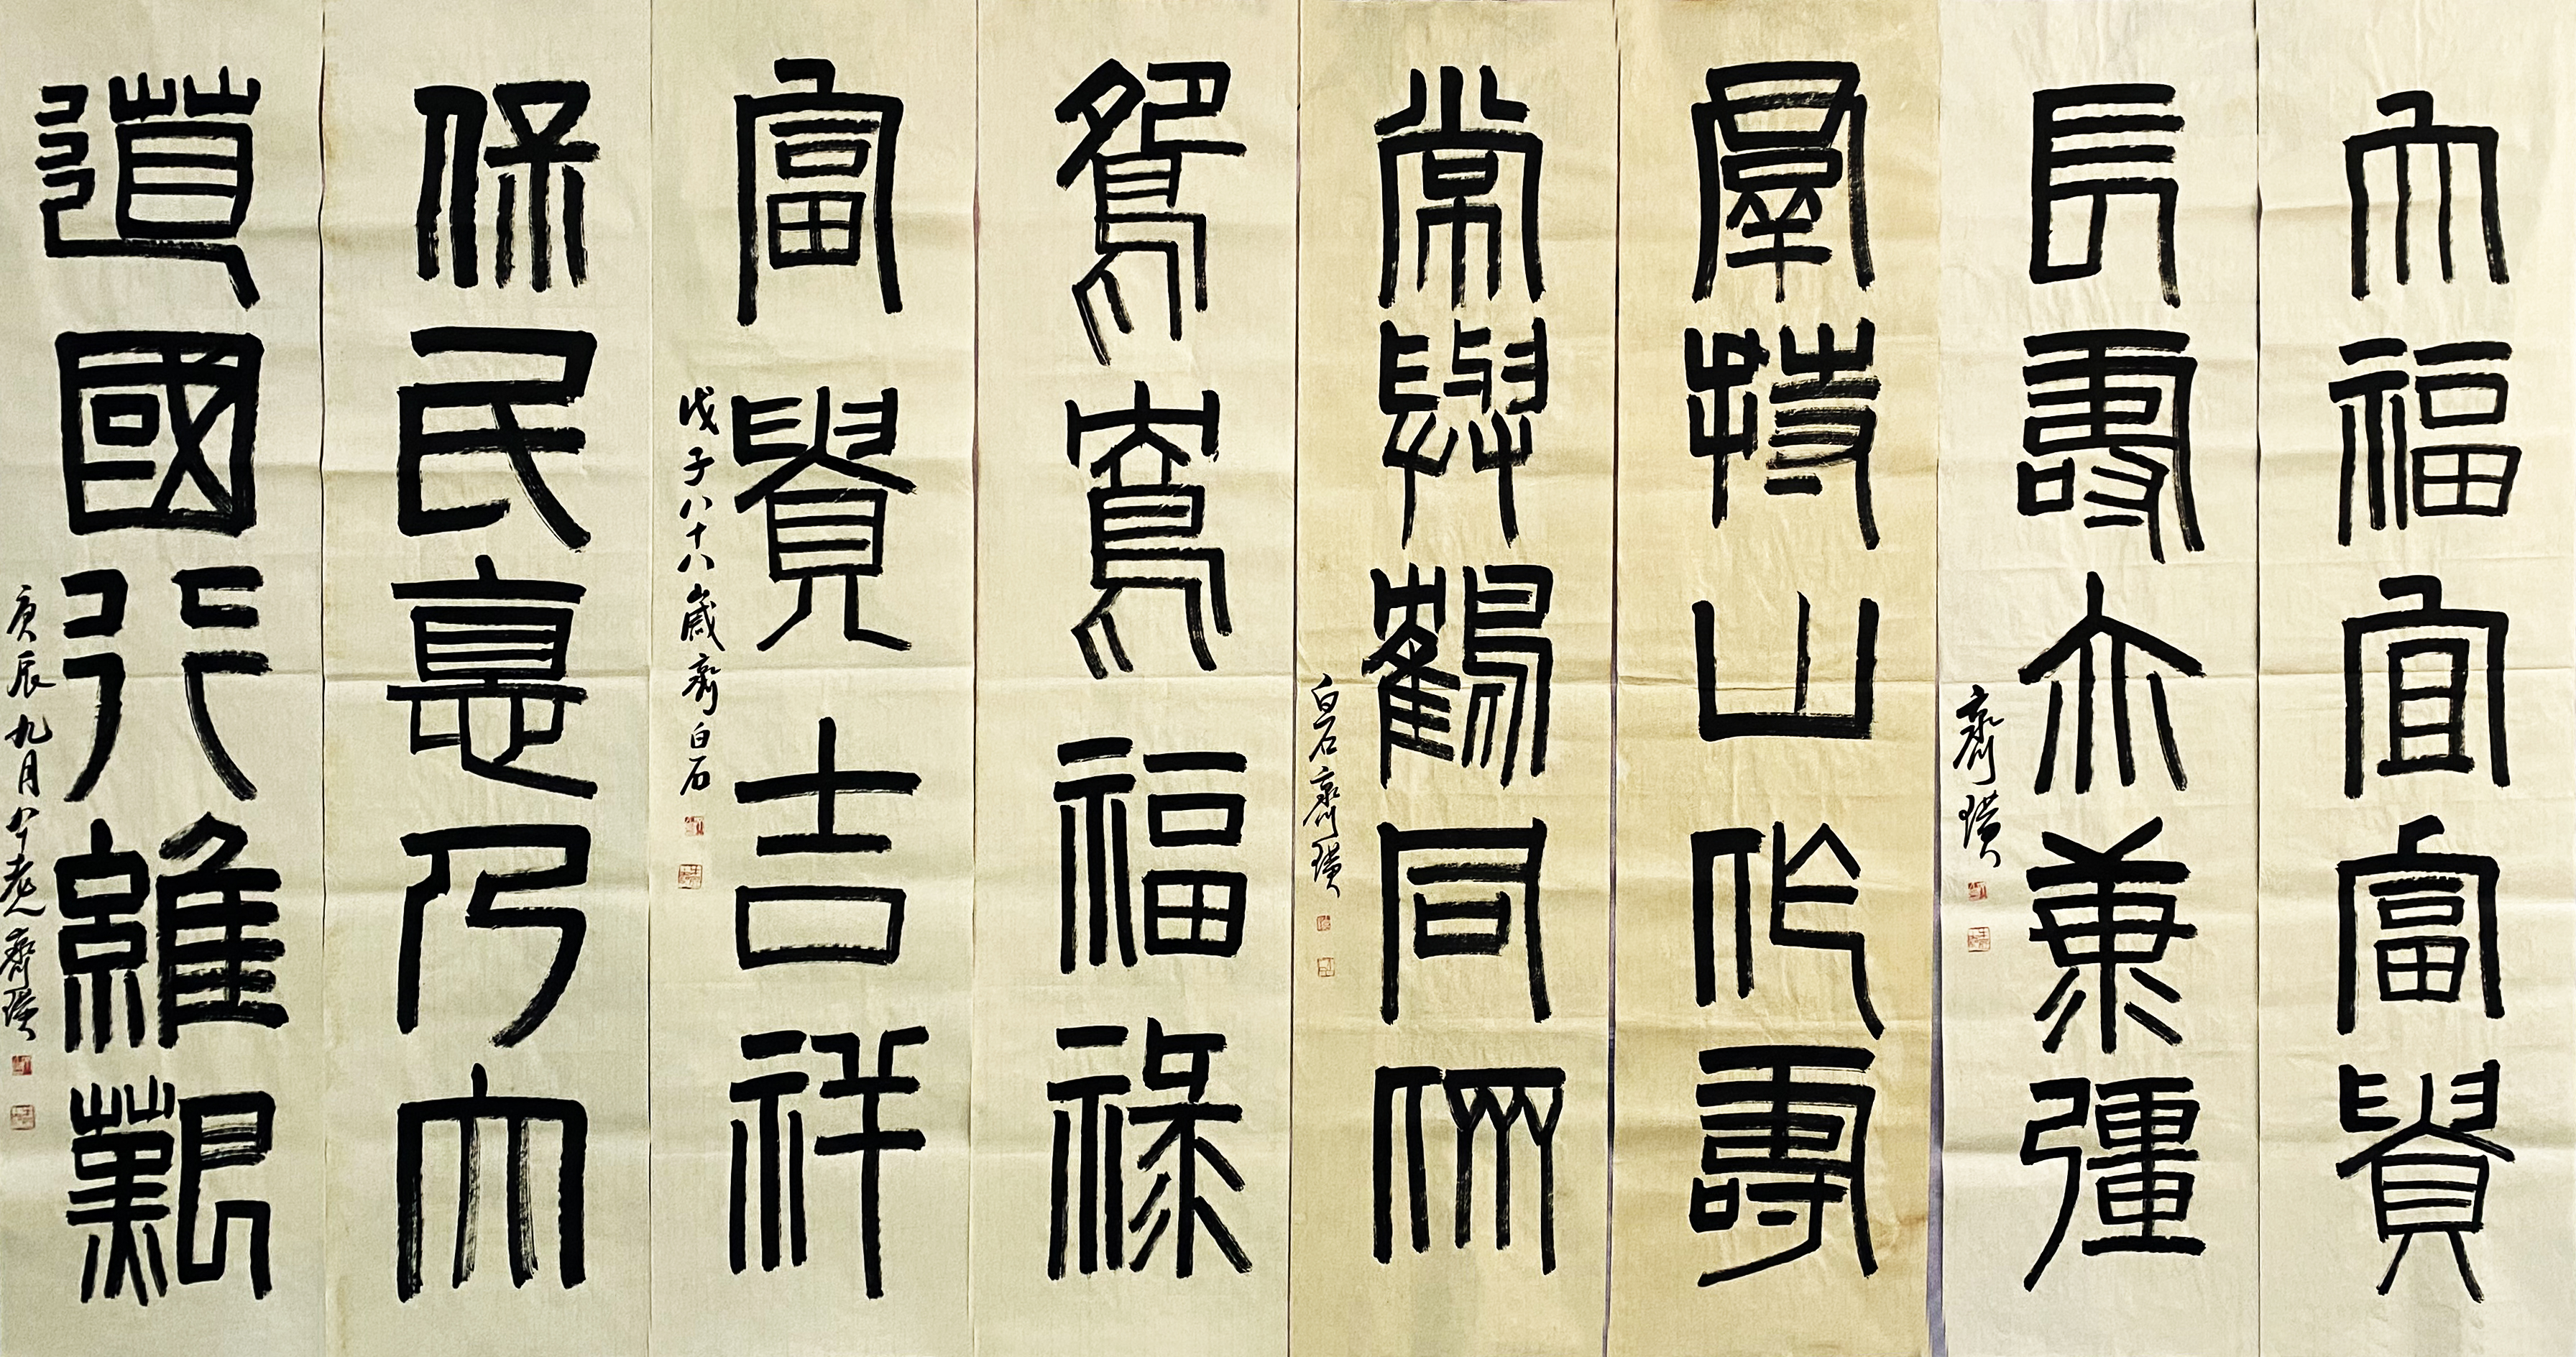 大福宜富貴
長壽亦兼彊
齊璜
羣持山作壽
常與鶴同儕
白石齊璜
鴛鴦福祿
富貴吉祥
戊子八十八歲齊白石
保民悳乃大
道國行維艱
庚辰九月八十老人齊璜